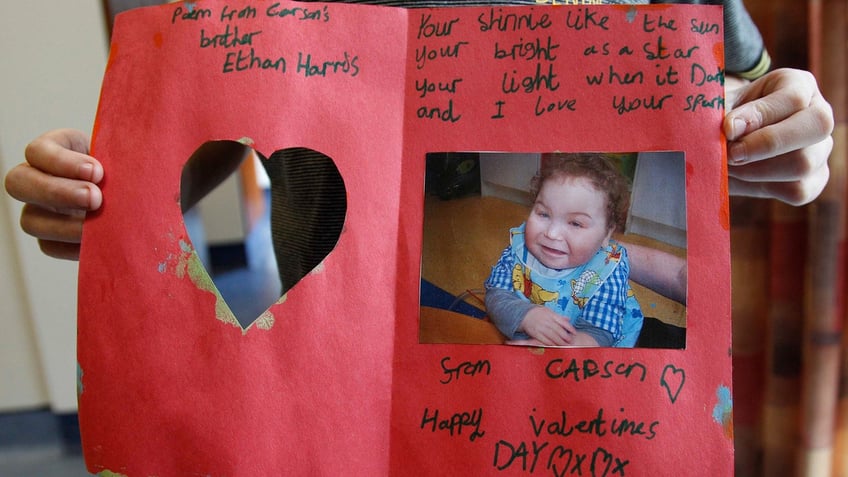 Poem from Carson's
brother
Ethan Harris
Your shinnle like the sun
your bright as a star
your light when it Dark
and I love your spark
from CARSON ♡
Happy valentimes
DAY ♡x♡x